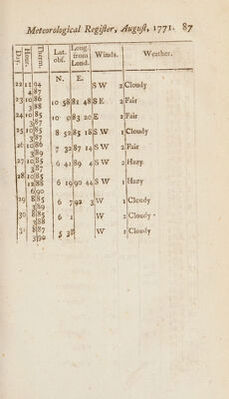 Meteorological Register, August, 1771. 87
Day. Hour. Therm. Lat. obs. Long. from Lond. Winds. Weather.
N. E.
22 11 94 S W 2 Cloudy
4 87
23 10 86 10 58 81 48 S E 2 Fair
3 88
24 10 85 10 0 83 20 E 2 Fair
3 87
25 10 85 8 52 85 18 S W 1 Cloudy
3 87
26 10 86 7 32 87 14 S W 2 Fair
3 89
27 10 85 6 41 89 4 S W 2 Hazy
3 87
28 10 85
12 88 6 19 90 44 S W 1 Hazy
6 90
29 8 85 6 7 92 3 W 1 Cloudy
3 89
30 8 85 6 1 W 2 Cloudy
3 88
31 8 87 5 38 W 1 Cloudy
3 90